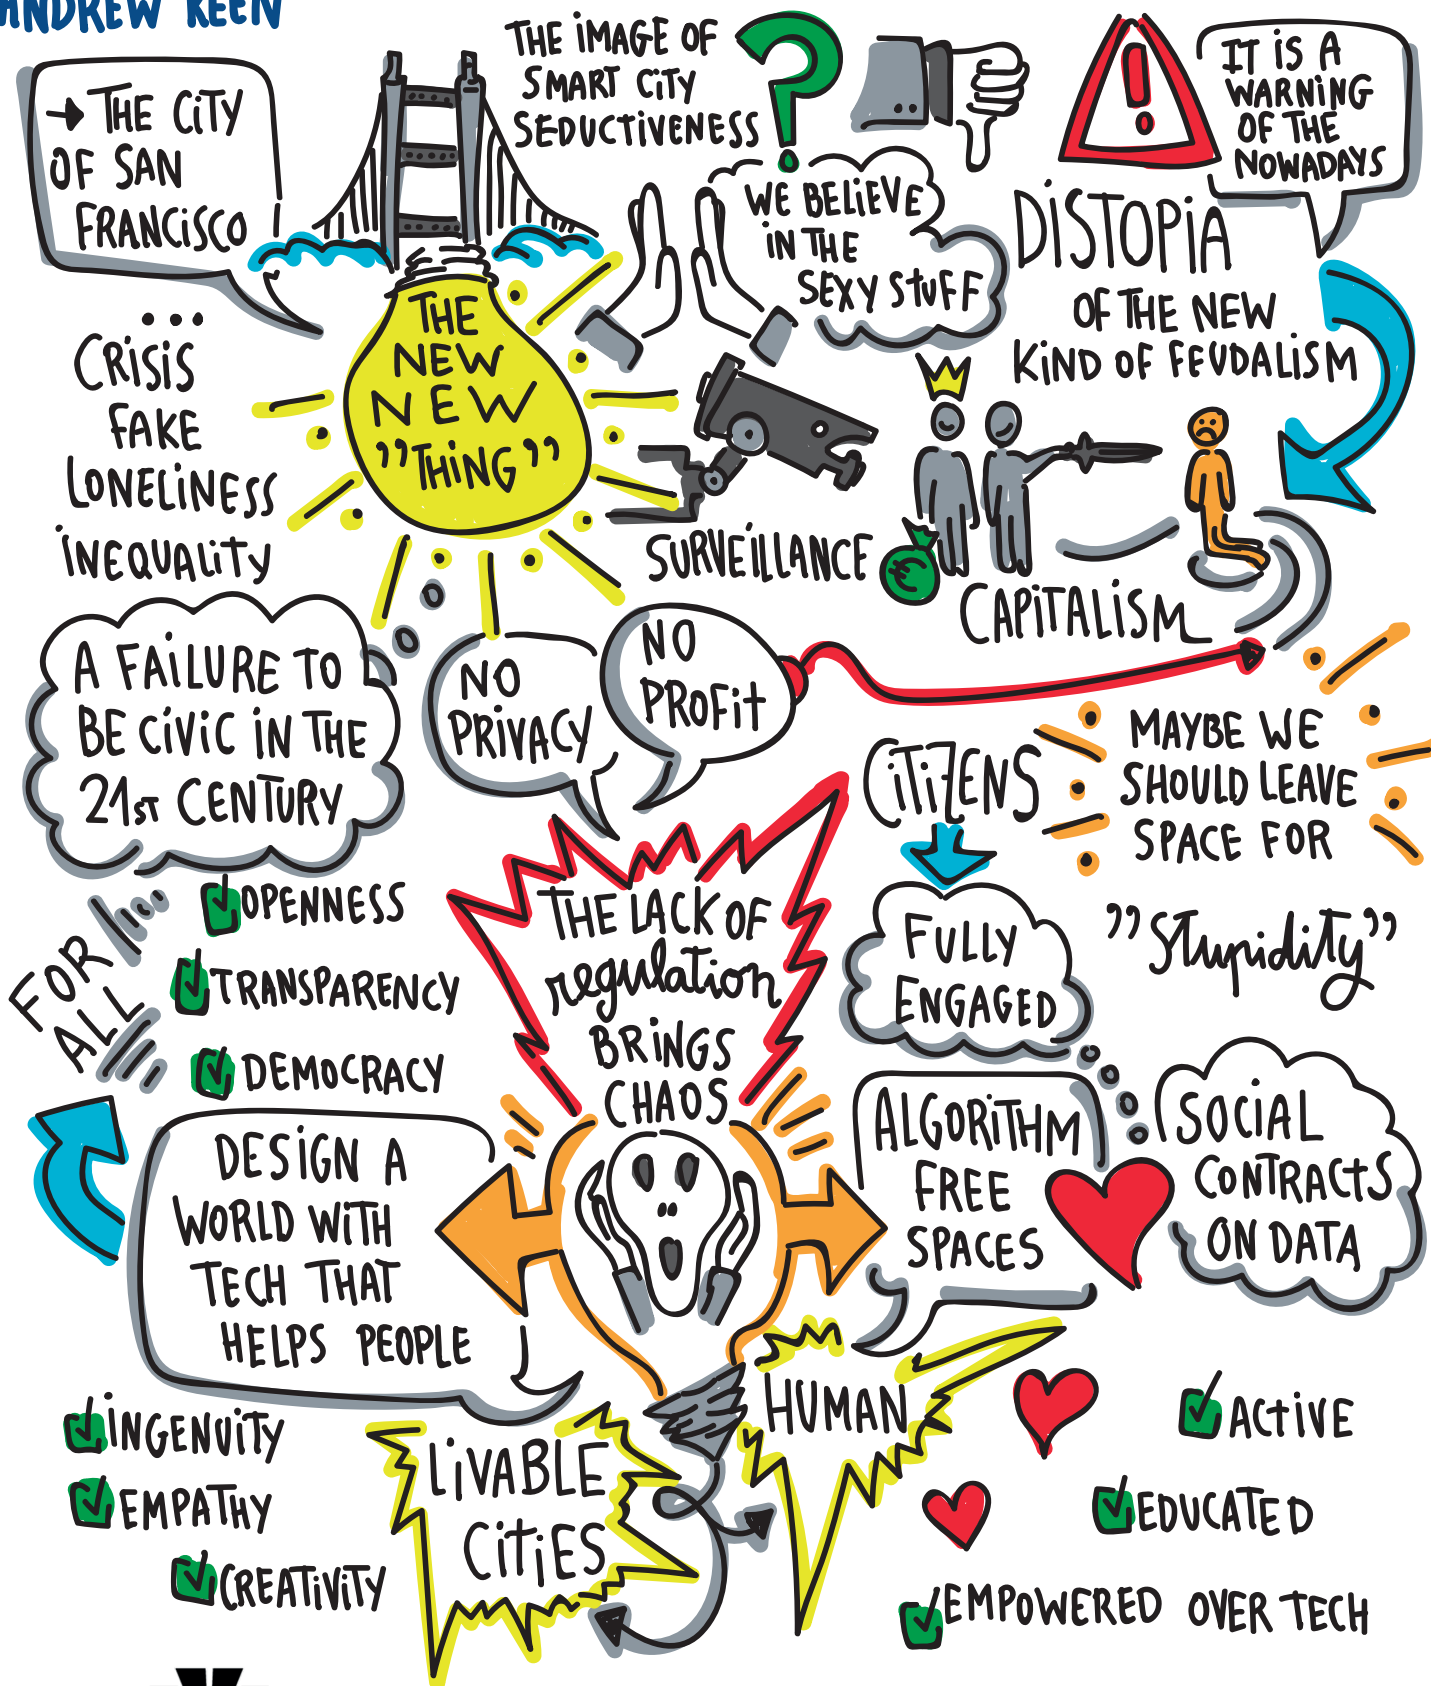 ANDREW KEEN
→ THE CITY
OF SAN
FRANCISCO
THE IMAGE OF
SMART CITY
SEDUCTIVENESS
?
!
IT IS A
WARNING
OF THE
NOWADAYS
WE BELIEVE
IN THE
SEXY STUFF
DISTOPIA
OF THE NEW
KIND OF FEUDALISM
...
CRISIS
FAKE
LONELINESS
INEQUALITY
THE
NEW
NEW
"THING"
SURVEILLANCE
€
CAPITALISM
A FAILURE TO
BE CIVIC IN THE
21ST CENTURY
NO
PRIVACY
NO
PROFIT
CITIZENS
MAYBE WE
SHOULD LEAVE
SPACE FOR
"Stupidity"
FULLY
ENGAGED
FOR
ALL
OPENNESS
TRANSPARENCY
DEMOCRACY
THE LACK OF
regulation
BRINGS
CHAOS
ALGORITHM
FREE
SPACES
SOCIAL
CONTRACTS
ON DATA
DESIGN A
WORLD WITH
TECH THAT
HELPS PEOPLE
INGENUITY
EMPATHY
CREATIVITY
LIVABLE
CITIES
HUMAN
ACTIVE
EDUCATED
EMPOWERED OVER TECH